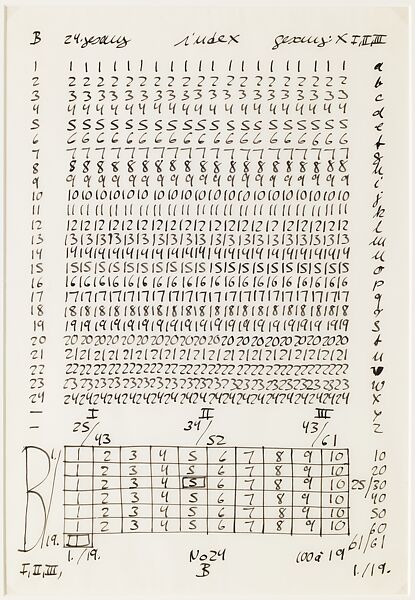 B 24.gesang index gesang: X I,II,III
1 1 1 1 1 1 1 1 1 1 1 1 1 1 1 1 1 1 1 1 1 a
2 2 2 2 2 2 2 2 2 2 2 2 2 2 2 2 2 2 2 2 2 b
3 3 3 3 3 3 3 3 3 3 3 3 3 3 3 3 3 3 3 3 3 c
4 4 4 4 4 4 4 4 4 4 4 4 4 4 4 4 4 4 4 4 4 d
5 5 5 5 5 5 5 5 5 5 5 5 5 5 5 5 5 5 5 5 5 e
6 6 6 6 6 6 6 6 6 6 6 6 6 6 6 6 6 6 6 6 6 f
7 7 7 7 7 7 7 7 7 7 7 7 7 7 7 7 7 7 7 7 7 g
8 8 8 8 8 8 8 8 8 8 8 8 8 8 8 8 8 8 8 8 8 h
9 9 9 9 9 9 9 9 9 9 9 9 9 9 9 9 9 9 9 9 9 i
10 10 10 10 10 10 10 10 10 10 10 10 10 10 10 10 10 10 10 10 10 j
11 11 11 11 11 11 11 11 11 11 11 11 11 11 11 11 11 11 11 11 11 k
12 12 12 12 12 12 12 12 12 12 12 12 12 12 12 12 12 12 12 12 12 l
13 13 13 13 13 13 13 13 13 13 13 13 13 13 13 13 13 13 13 13 13 m
14 14 14 14 14 14 14 14 14 14 14 14 14 14 14 14 14 14 14 14 14 n
15 15 15 15 15 15 15 15 15 15 15 15 15 15 15 15 15 15 15 15 15 o
16 16 16 16 16 16 16 16 16 16 16 16 16 16 16 16 16 16 16 16 16 p
17 17 17 17 17 17 17 17 17 17 17 17 17 17 17 17 17 17 17 17 17 q
18 18 18 18 18 18 18 18 18 18 18 18 18 18 18 18 18 18 18 18 18 r
19 19 19 19 19 19 19 19 19 19 19 19 19 19 19 19 19 19 19 19 19 s
20 20 20 20 20 20 20 20 20 20 20 20 20 20 20 20 20 20 20 20 20 t
21 21 21 21 21 21 21 21 21 21 21 21 21 21 21 21 21 21 21 21 21 u
22 22 22 22 22 22 22 22 22 22 22 22 22 22 22 22 22 22 22 22 22 v
23 23 23 23 23 23 23 23 23 23 23 23 23 23 23 23 23 23 23 23 23 w
24 24 24 24 24 24 24 24 24 24 24 24 24 24 24 24 24 24 24 24 24 x
– I II III y
– 25/43 34/52 43/61 z
B 1./19.
1 2 3 4 5 6 7 8 9 10 10
1 2 3 4 5 6 7 8 9 10 20
1 2 3 4 5 6 7 8 9 10 25/30
1 2 3 4 5 6 7 8 9 10 40
1 2 3 4 5 6 7 8 9 10 50
1 2 3 4 5 6 7 8 9 10 60
1 61/61
I, II, III, 1./19. No 24 100 à 19 1./19.
B